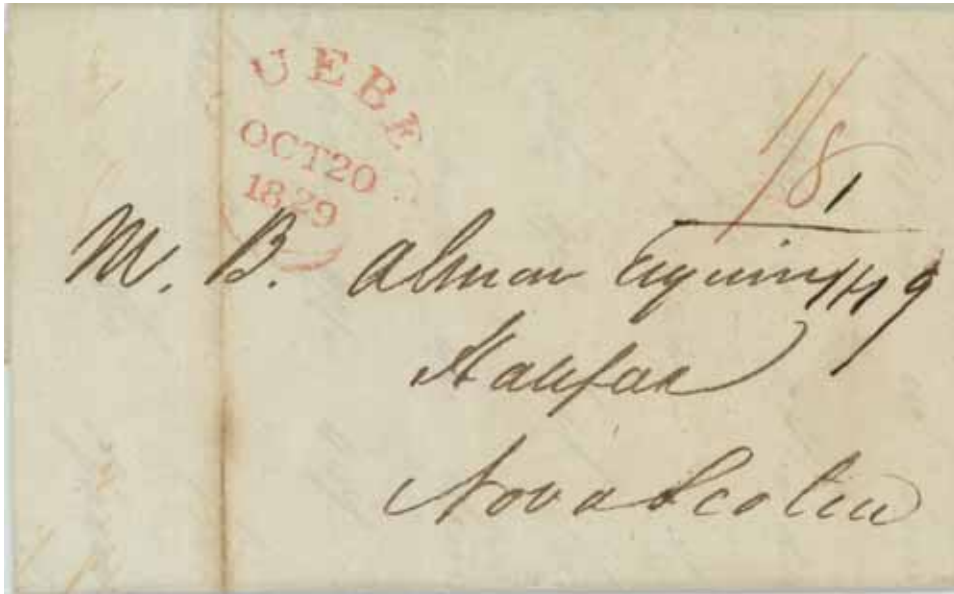 UEBE
OCT20
1829
1/8
1
M. B. Almon Esquire 1/1 9
Halifax
Nova Scotia